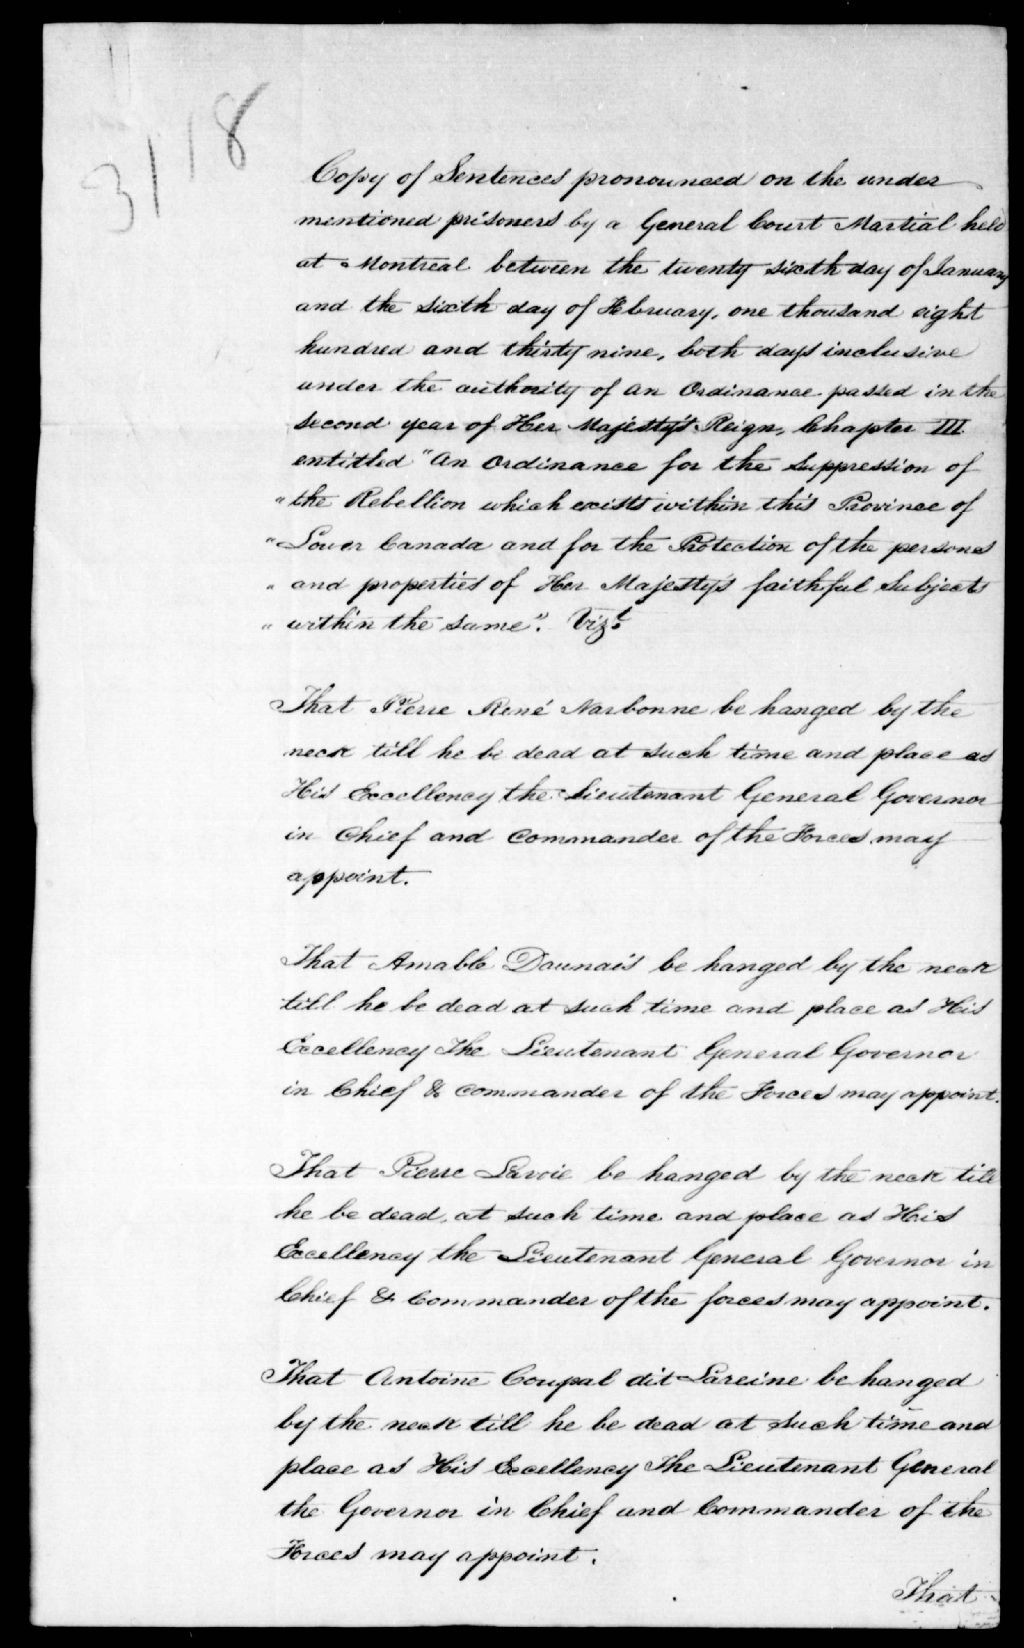 3118
Copy of Sentences pronounced on the under
mentioned prisoners by a General Court Martial held
at Montreal between the twenty sixth day of January
and the sixth day of February, one thousand eight
hundred and thirty nine, both days inclusive
under the authority of an Ordinance passed in the
second year of Her Majesty's Reign, Chapter III
entitled "An Ordinance for the Suppression of
"the Rebellion which exists within this Province of
"Lower Canada and for the Protection of the persons
"and properties of Her Majesty's faithful Subjects
"within the same". Vizt.
That Pierre René Narbonne be hanged by the
neck till he be dead at such time and place as
His Excellency the Lieutenant General Governor
in Chief and Commander of the Forces may
appoint.
That Amable Daunais be hanged by the neck
till he be dead at such time and place as His
Excellency The Lieutenant General Governor
in Chief & Commander of the Forces may appoint.
That Pierre Lavoie be hanged by the neck till
he be dead, at such time and place as His
Excellency the Lieutenant General Governor in
Chief & Commander of the forces may appoint.
That Antoine Coupal dit Lareine be hanged
by the neck till he be dead at such time and
place as His Excellency The Lieutenant General
the Governor in Chief and Commander of the
Forces may appoint.
That